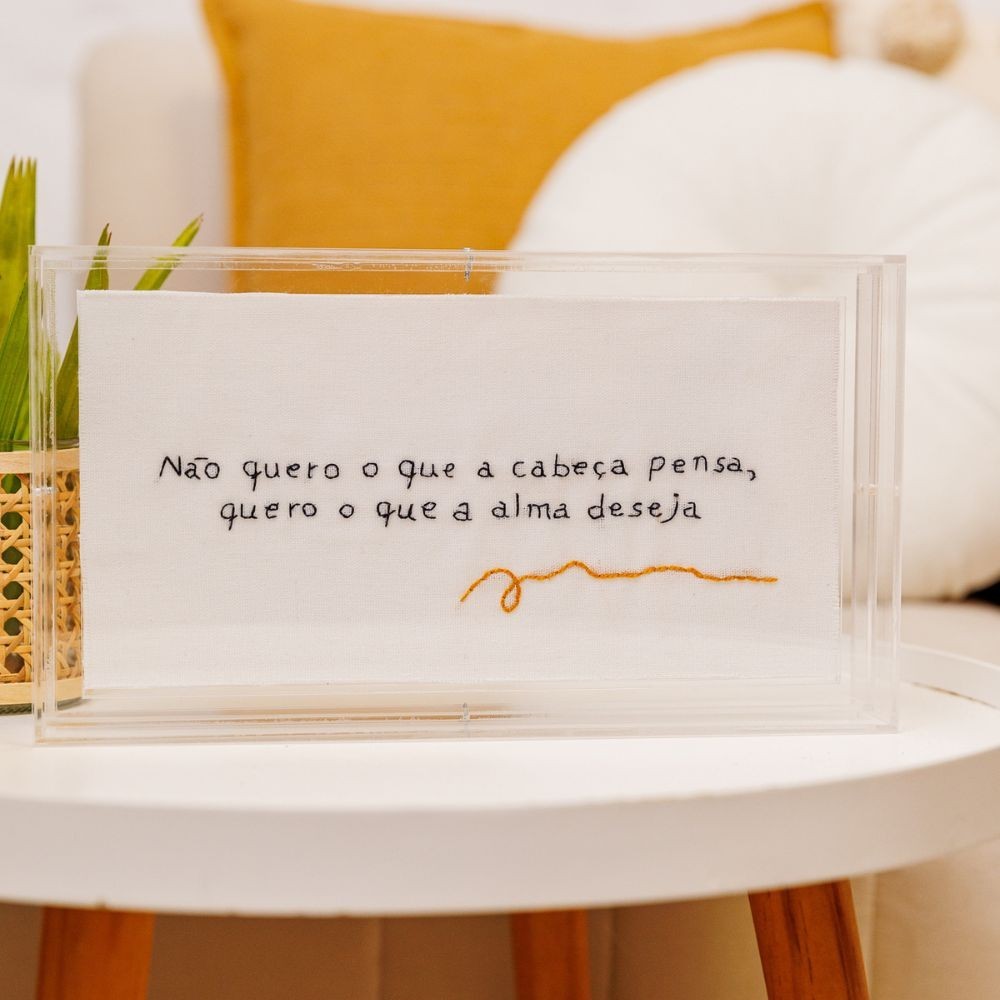 Não quero o que a cabeça pensa,
quero o que a alma deseja